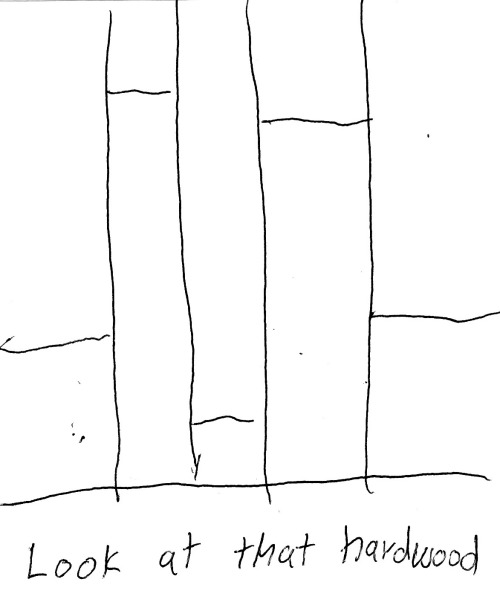 Look at that hardwood